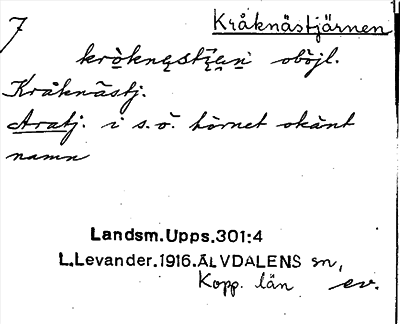 7 Kråknästjärnen
obojl.
Kråknästj.
Aratj. i s.ö. hörnet okänt
namn
Landsm.Upps.301:4
L.Levander.1916.ÄLVDALENS sn,
Kopp. län ev.